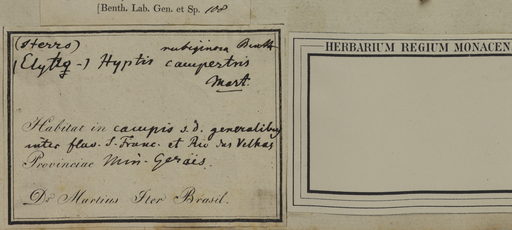 [Benth. Lab. Gen. et Sp. 108
(Herro) rubiginosa Benth
Hyptis campestris
Mart.
Habitat in campis s.d. generalibus
inter fluv. S. Franc. et Rio das Velhas
Provinciae Min. Geraës.
Dr Martius Iter Brasil.
HERBARIUM REGIUM MONACEN